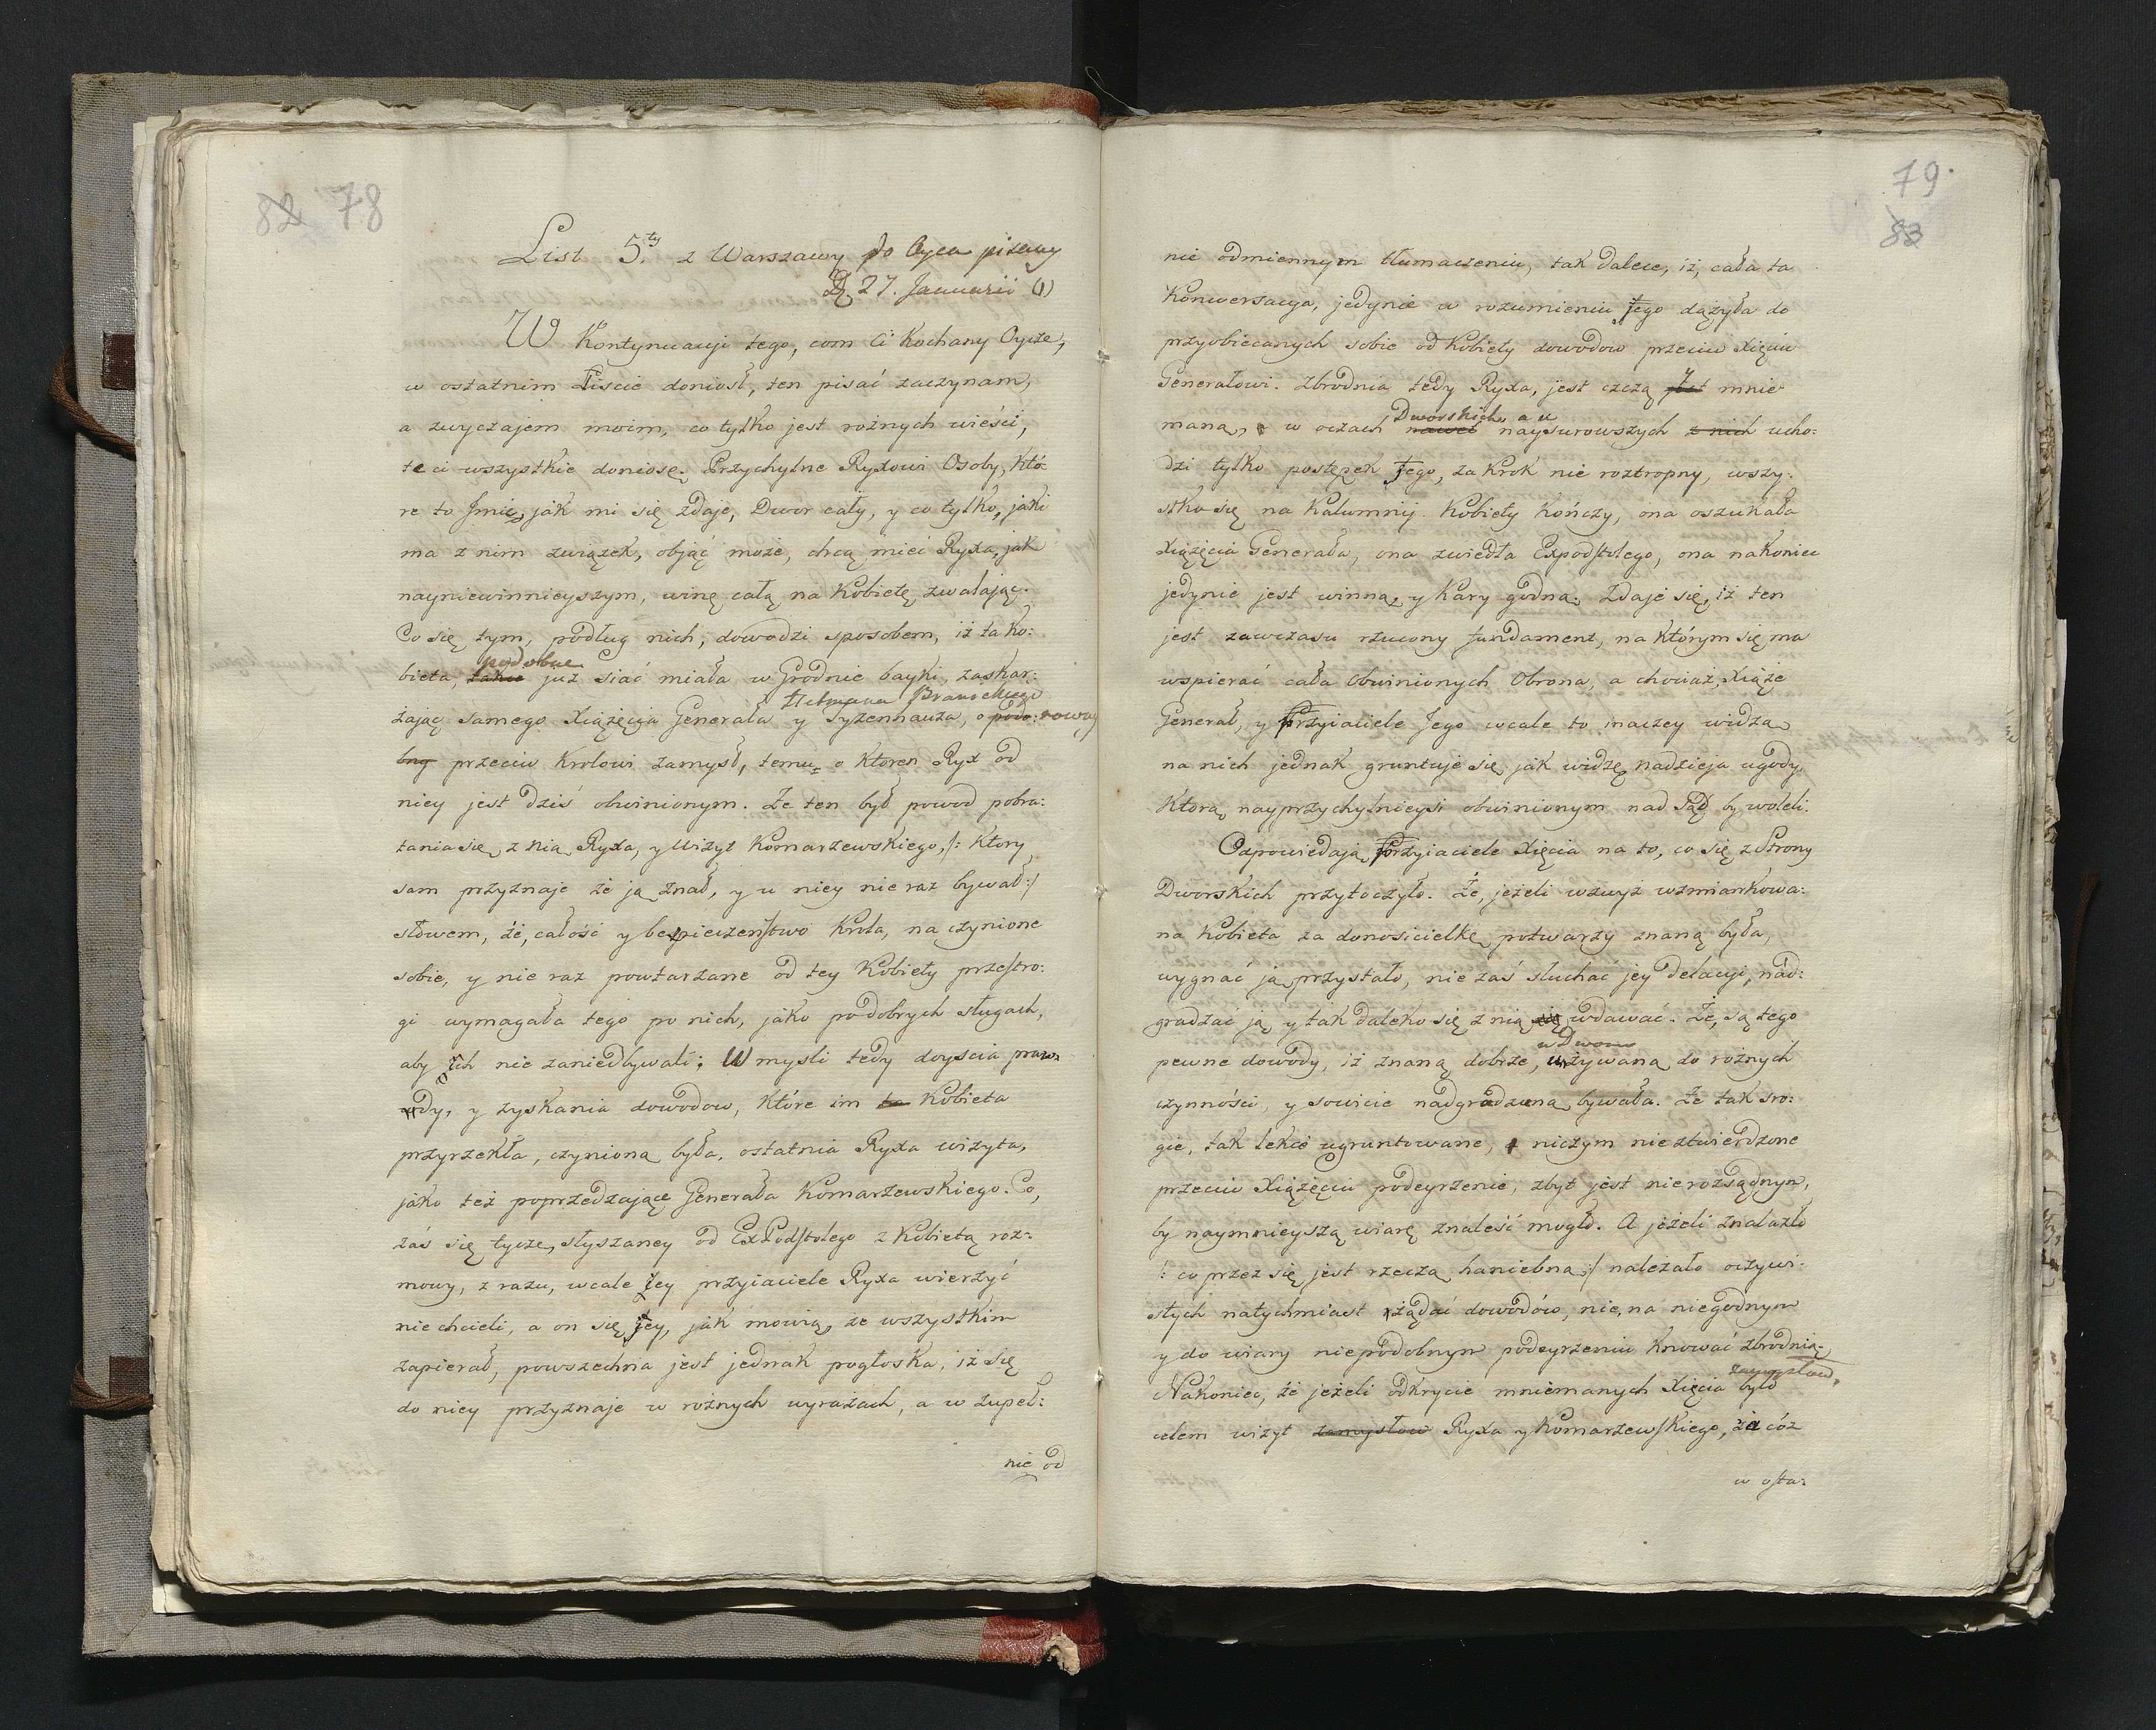 82 78
List 5.ty z Warszawy do Oyca pisany
D. 27. Januarii (1)
W Kontynuacyi tego, com Ci Kochany Oycze,
w ostatnim Liscie doniosł, ten pisać zaczynam,
a zwyczajem moim, co tylko jest rożnych wieści,
te ci wszystkie doniosę. Przychylne Ryxowi Osoby, któ:
re to Jmie, jak mi się zdaje, Dwor cały, y co tylko, jaki
ma z nim związek, objąć może, chcą mieć Ryxa, jak
nayniewinnieyszym, winę całą na Kobietę zwalając.
Co się tym, podług nich, dowodzi sposobem, iż ta ko:
podobne
bieta, takie już siać miała w Grodnie bayki, zaskar:
Hetmana Branickiego
żając samego Xiążęcia Generała y Tyzenhauza, o podo: nowy
bny przeciw Krolowi zamysł, temu, o ktoren Ryx od
niey jest dziś obwinionym. Że ten był powod pobra:
tania się z nią Ryxa, y wizyt Komarzewskiego, /: Ktory
sam przyznaje że ją znał, y u niey nie raz bywał :/
słowem, że, całość y bespieczeństwo Krola, na czynione
sobie, y nie raz powtarzane od tey Kobiety przestro:
gi wymagała tego po nich, jako po dobrych sługach,
aby ich nie zaniedbywali; W mysli tedy doyscia praw:
dy, y zyskania dowodow, które im ta Kobieta
przyrzekła, czyniona była, ostatnia Ryxa wizyta,
jako też poprzedzające Generała Komarzewskiego. Co,
zaś się tycze, słyszaney od ExPodstolego z Kobietą roz:
mowy, z razu, wcale jey przyiaciele Ryxa wierzyć
nie chcieli, a on się jey, jak mowią, ze wszystkim
zapierał, powszechna jest jednak pogłoska, iż się
do niey przyznaje w rożnych wyrażach, a w zupeł:
nie od
79.
83
nie odmiennym tłumaczeniu, tak dalece, iż, cała ta
Konwersacya, jedynie w rozumieniu Jego dążyła do
przyobiecanych sobie od Kobiety dowodow przeciw Xięciu
Generałowi. Zbrodnia tedy Ryxa, jest czczą jest mnie
Dworskich, a u
maną, w oczach nawet naysurowszych z nich ucho:
dzi tylko postępek Jego, za krok nie roztropny, wszy:
stko się na Kalumnij Kobiety kończy, ona oszukała
Xiążęcia Generała, ona zwiedła Expodstolego, ona nakoniec
jedynie jest winną, y Kary godną. Zdaje się, iż ten
jest zawczasu rzucony fundament, na którym się ma
wspierać cała Obwinionych Obrona, a chociaż, Xiąże
Generał, y Przyiaciele Jego wcale to inaczey widzą
na nich jednak gruntuje się jak widzę nadzieja ugody,
Ktorą nayprzychylnieysi obwinionym nad Sąd by woleli.
Odpowiedają Przyiaciele Xięcia na to, co się z Strony
Dworskich przytoczyło. Że, jeżeli wzwyż wzmiankowa:
na Kobieta za donosicielkę potwarzy znaną była,
wygnać ją przystało, nie zaś słuchać jey delacyi, nad:
gradzać ją y tak daleko się z nią się wdawać. Że, są tego
u Dworu
pewne dowody, iż znaną dobrze, używaną do rożnych
czynności, y sowicie nadgradzaną bywała. Że tak sro:
gie, tak lekce ugruntowane, niczym nie ztwierdzone
przeciw Xiążęciu podeyrzenie, zbyt jest nierozsądnym,
by naymnieyszą wiarę znaleść mogło. A jeżeli znalazło
/: co przez się jest rzeczą haniebną :/ należało oczywi:
stych natychmiast żądać dowodów, nie, na niegodnym
y do wiary niepodobnym podeyrzeniu knować zbrodnią,
zamysłow
Nakoniec, że jeżeli odkrycie mniemanych Xięcia było
celem wizyt zamysłow Ryxa y Komarzewskiego, za cóż
w osta: